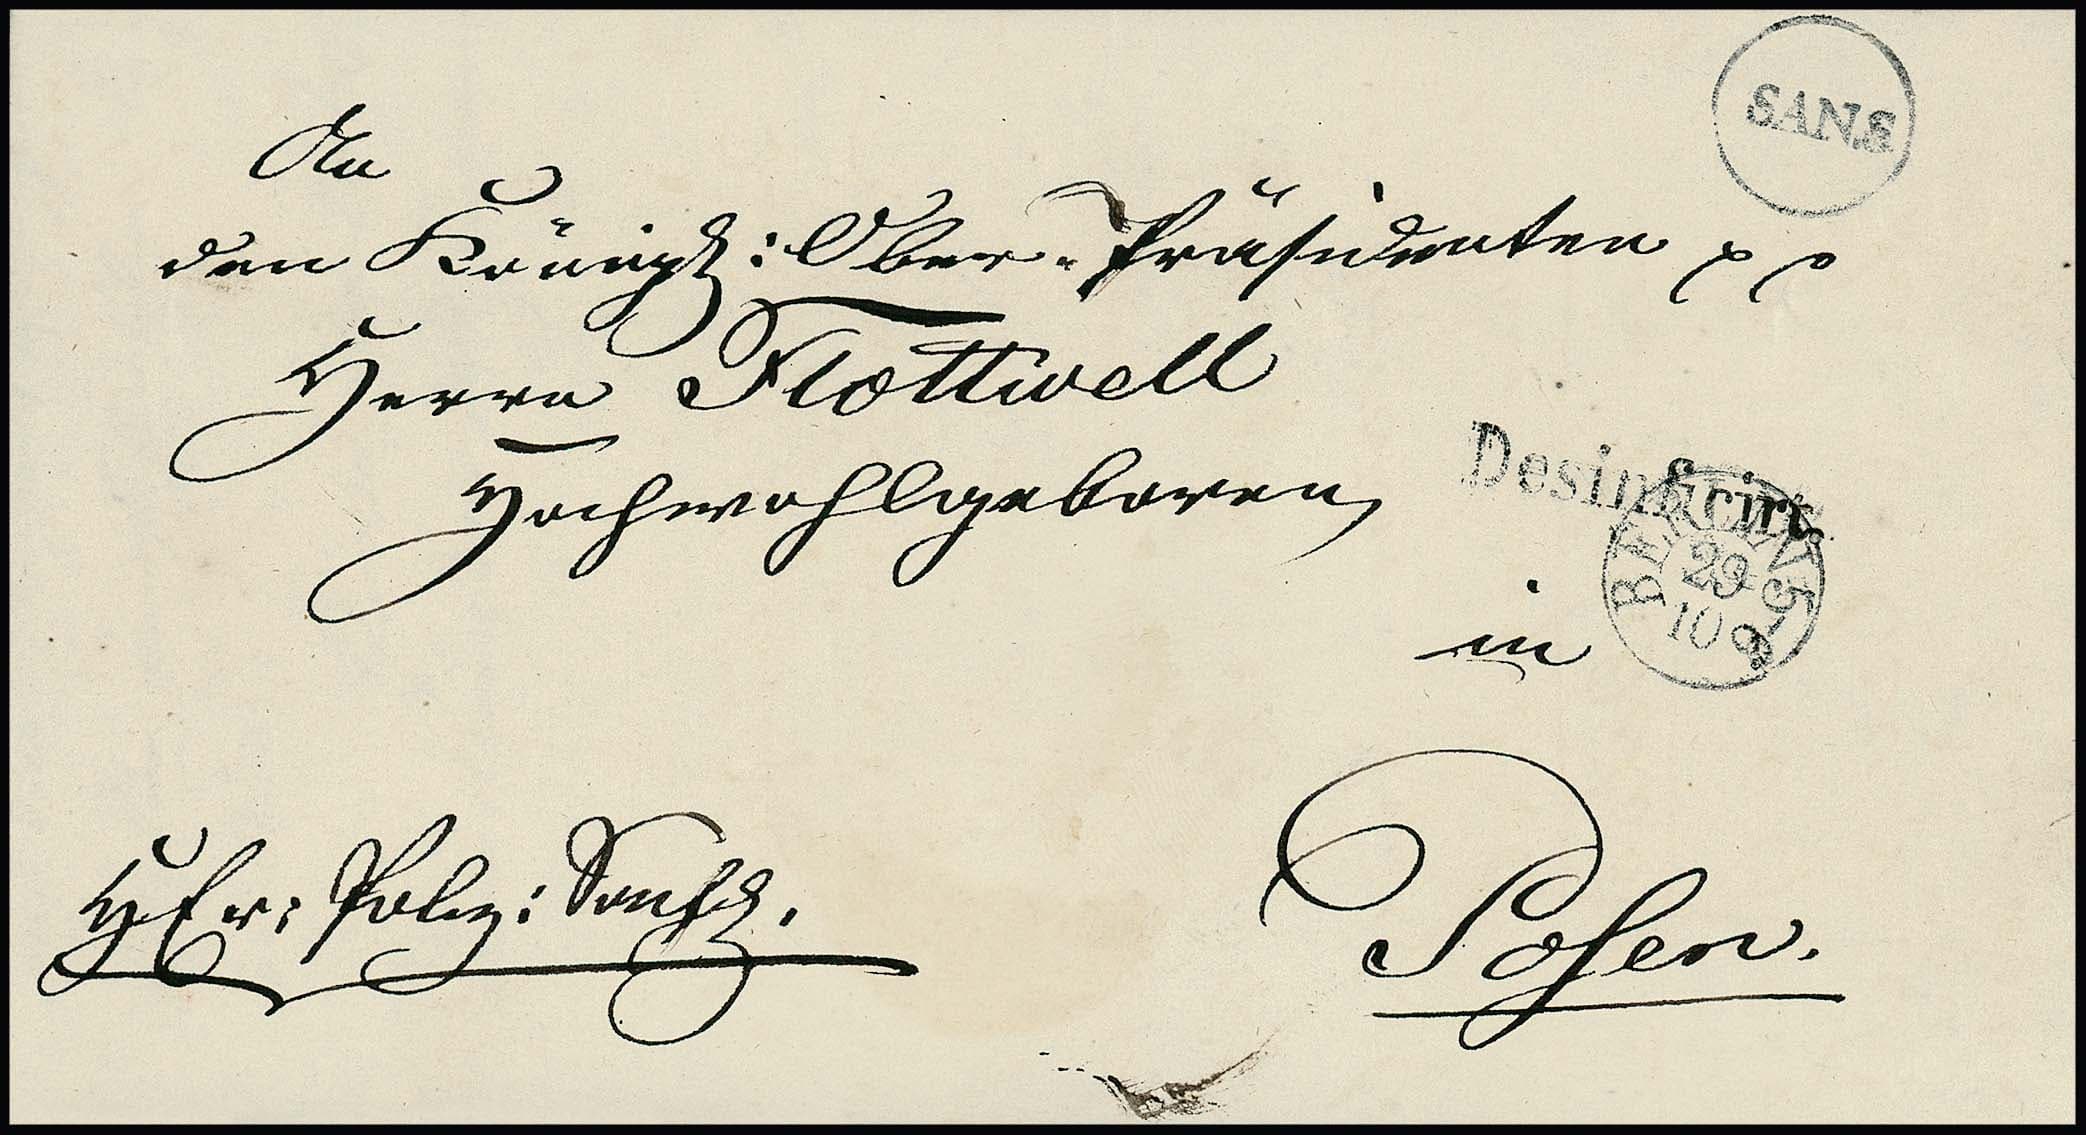 SAN.S
An
den Königl: Ober-Präsidenten pp
Herrn Flottwell
Hochwohlgeboren
Desinficirt.
BERLIN 5-6
29
10
in
Posen.
Poliz: